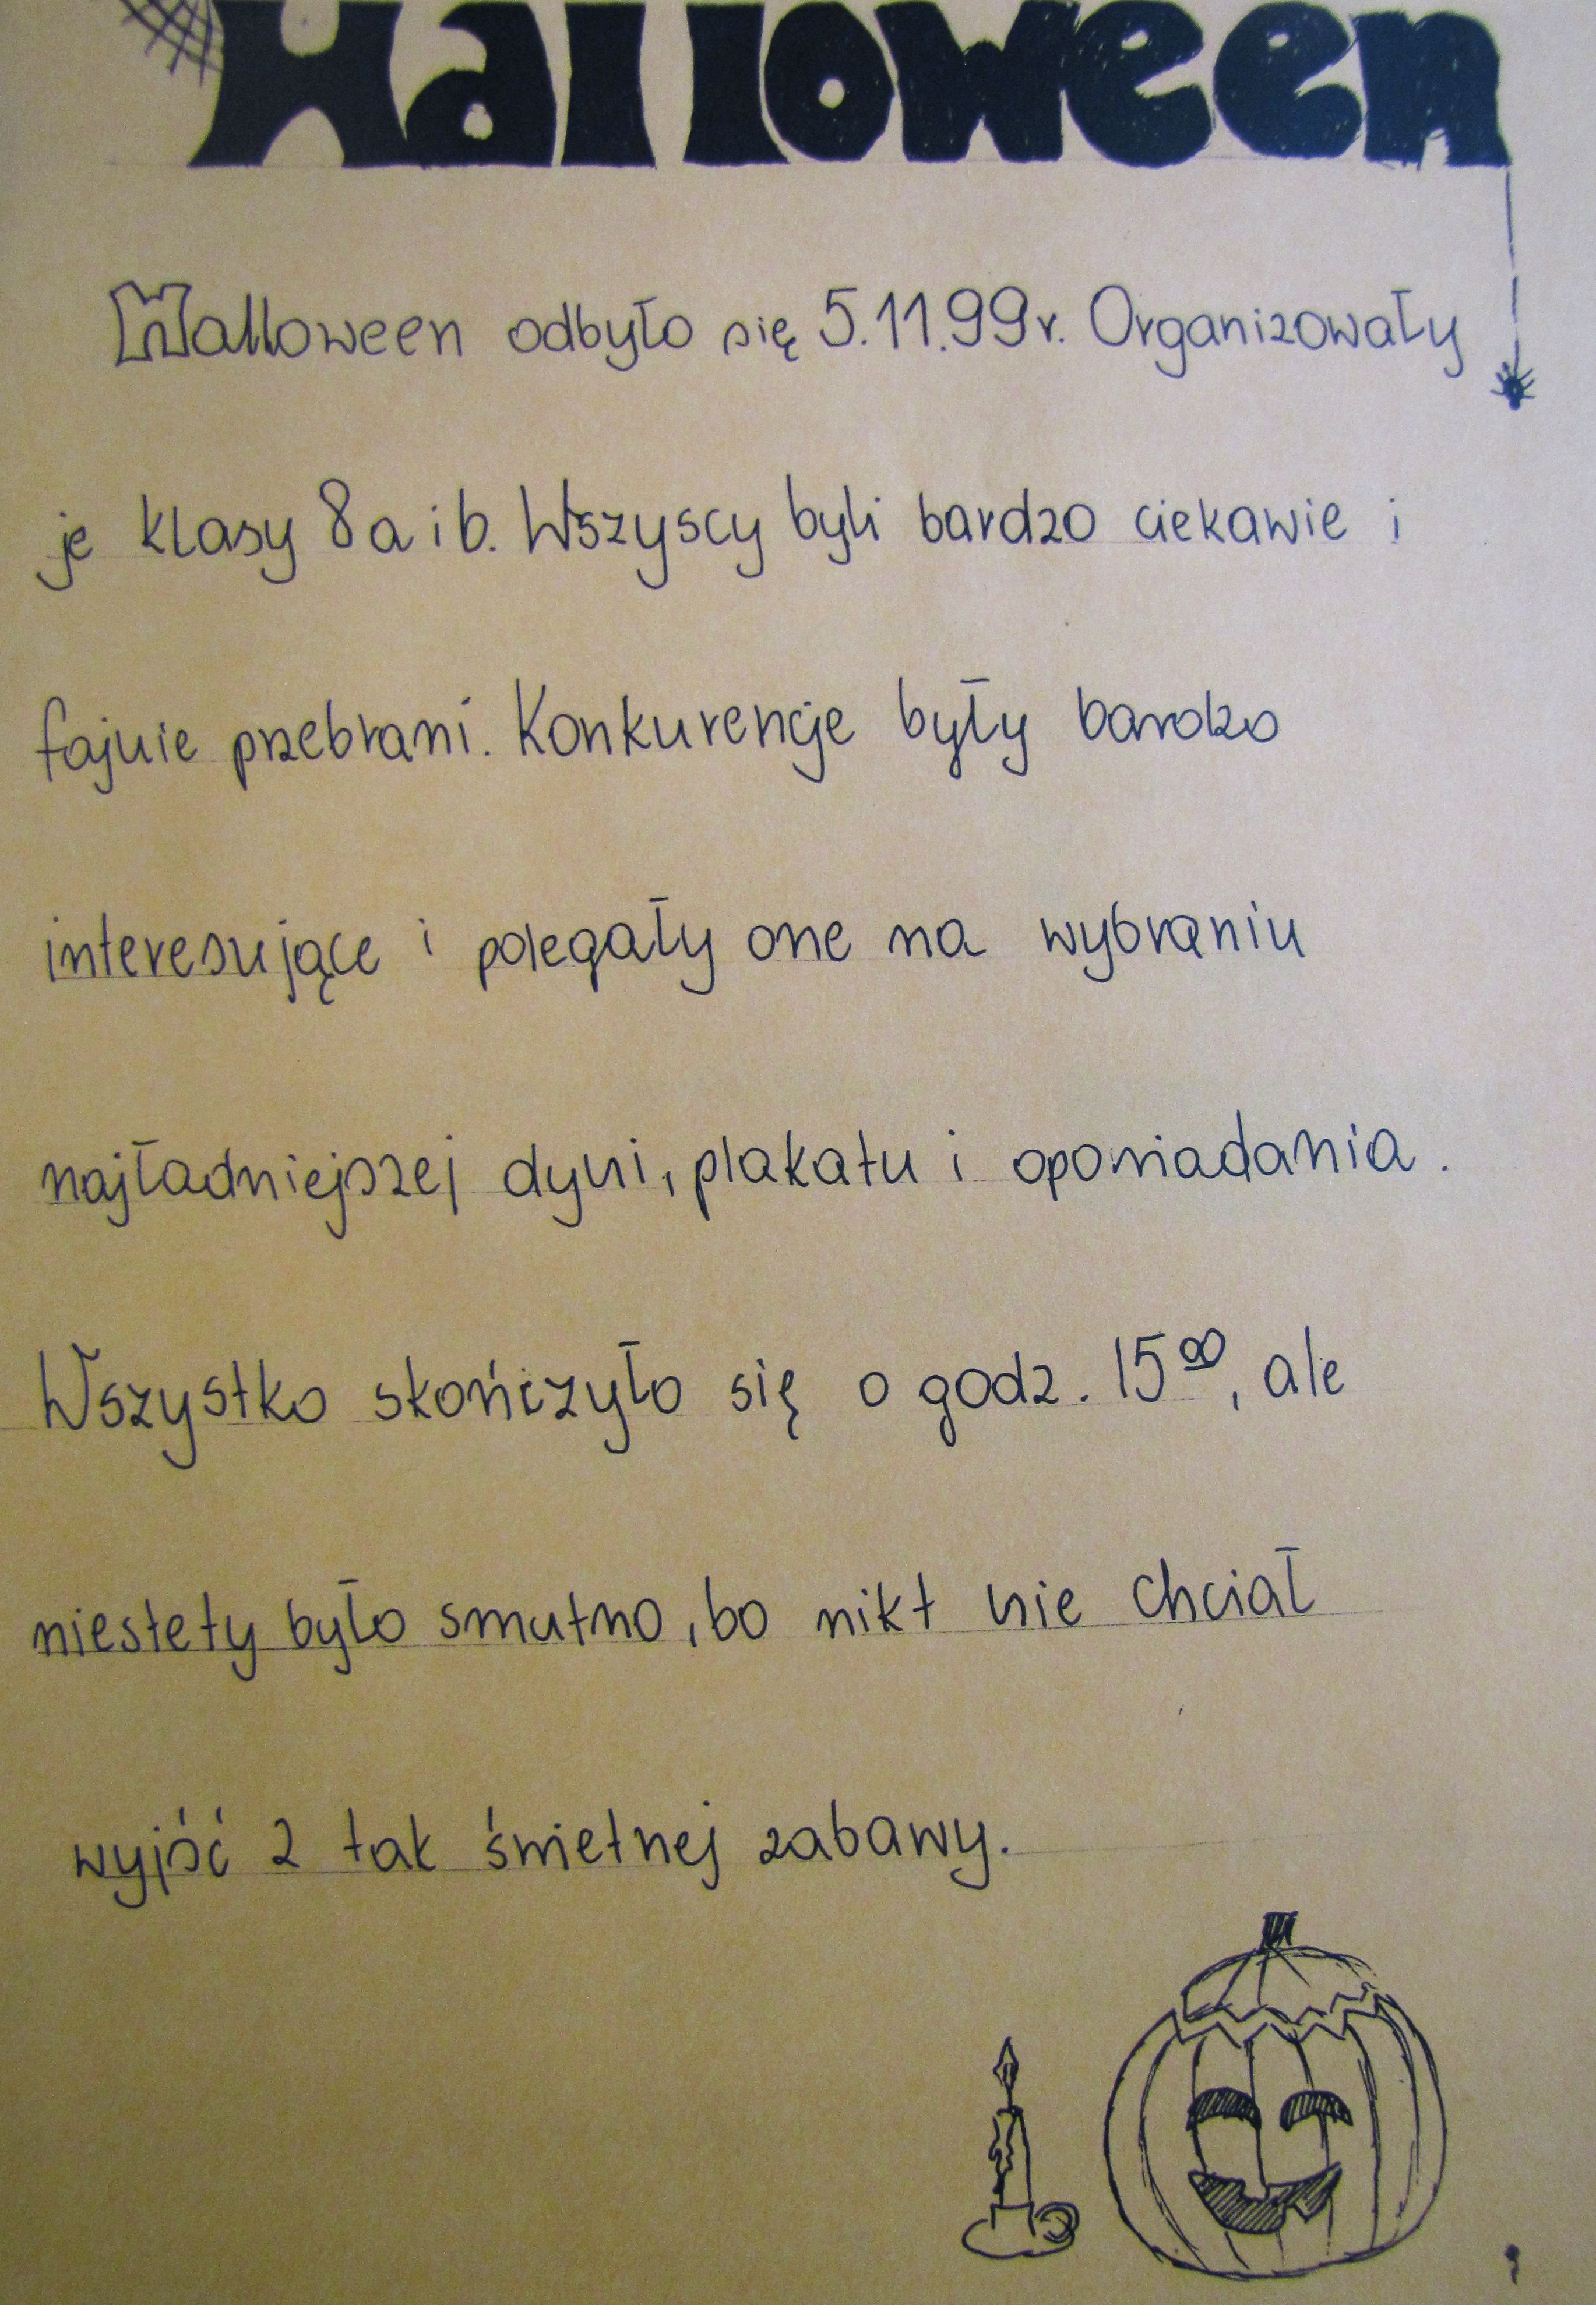 Halloween
Halloween odbyło się 5.11.99r. Organizowały
je klasy 8 a i b. Wszyscy byli bardzo ciekawie i
fajnie przebrani. Konkurencje były bardzo
interesujące i polegały one na wybraniu
najładniejszej dyni, plakatu i opowiadania.
Wszystko skończyło się o godz. 15⁰⁰, ale
niestety było smutno, bo nikt nie chciał
wyjść z tak świetnej zabawy.